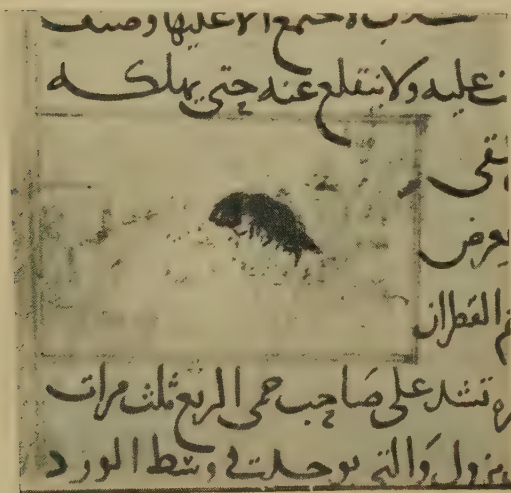 الا عليها وصنف
عليه ولا ينقلع عنه حتى يهلكه
يعرض
القطران
تشد على صاحب حمى الربع ثلث مرات
يزول والتى توجد في وسط الورد